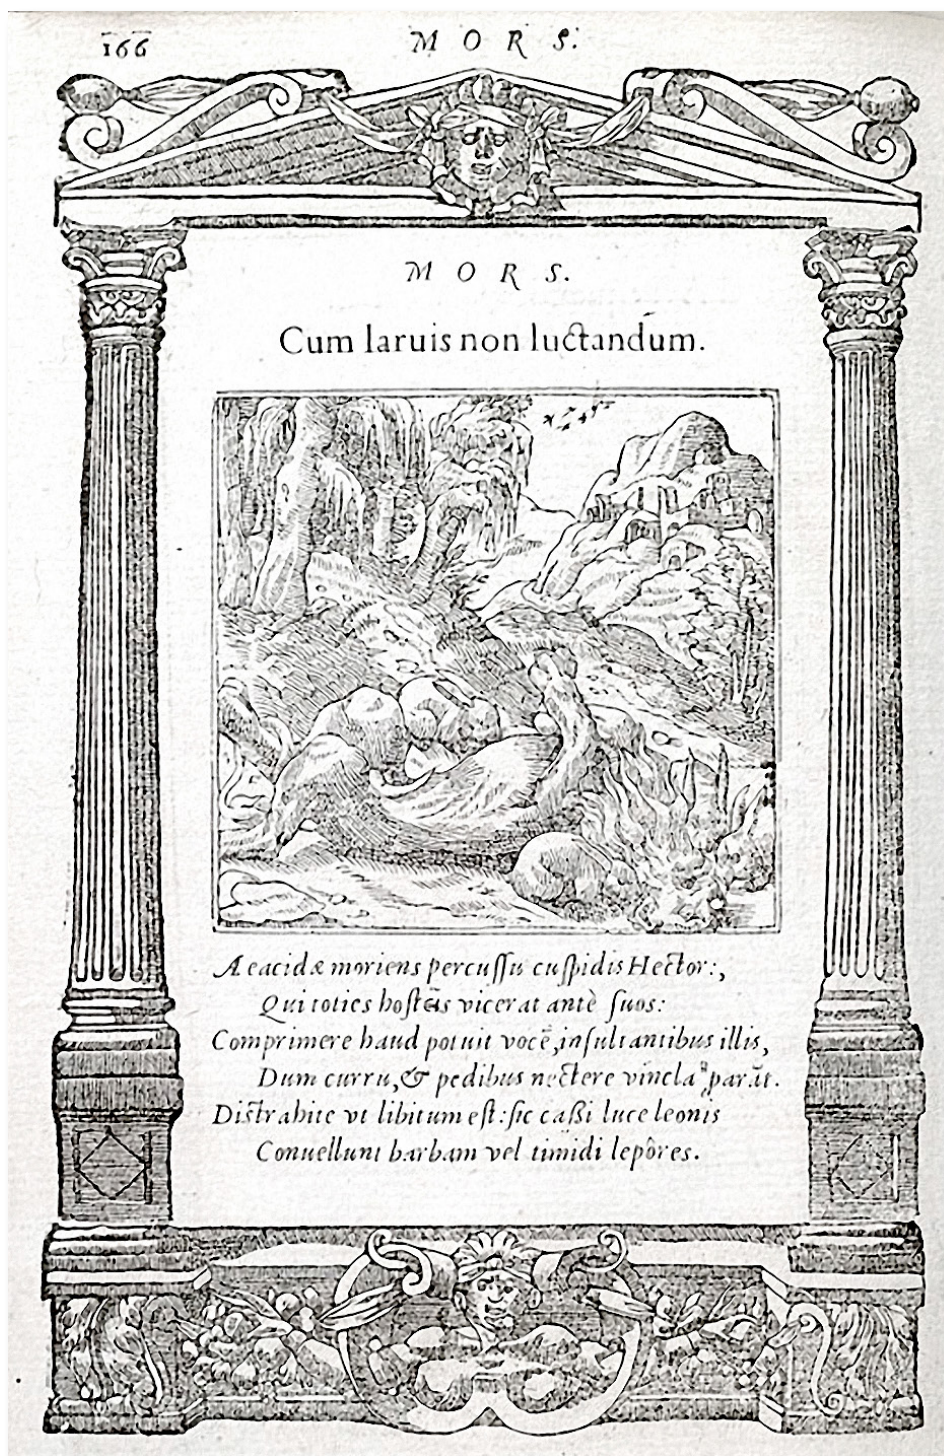 166
MORS.
MORS.
Cum laruis non luctandum.
Aeacidæ moriens percussu cuspidis Hector:,
Qui toties hosteis vicerat antè suos:
Comprimere haud potuit vocē, insultantibus illis,
Dum curru, & pedibus nectere vincla parāt.
Distrahite vt libitum est: sic cassi luce leonis
Conuellunt barbam vel timidi lepores.